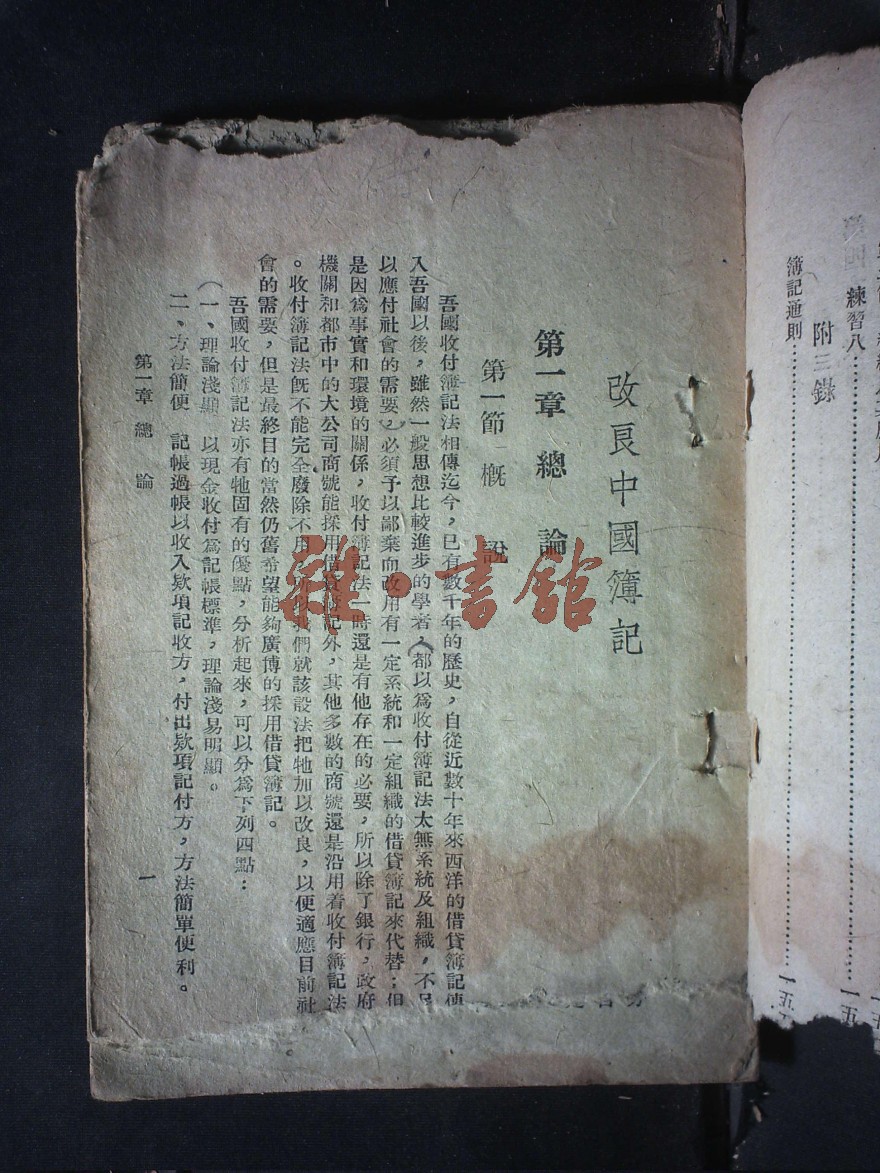 練習八……一五
附三錄
簿記通則……一五
改良中國簿記
第一章 總論
第一節 概說
吾國收付簿記法相傳迄今，已有數千年的歷史，自從近數十年來西洋的借貸簿記傳
入吾國以後，雖然一般思想比較進步的學者，都以爲收付簿記法太無系統及組織，不足
以應付社會的需要，必須予以鄙棄而改用有一定系統和一定組織的借貸簿記來代替；但
是因爲事實和環境的關係，收付簿記法一時還是有他存在的必要，所以除了銀行，政府
機關和都市中的大公司商號能採用借貸簿記外，其他多數的商號還是沿用着收付簿記法
。收付簿記法旣不能完全廢除不用，所以我們就該設法把牠加以改良，以便適應目前社
會的需要，但是最終目的當然仍舊希望能夠廣博的採用借貸簿記。
吾國收付簿記法亦有牠固有的優點，分析起來，可以分爲下列四點：
（一、理論淺顯 以現金收付爲記帳標準，理論淺易明顯。
二、方法簡便 記帳過帳以收入欵項記收方，付出欵項記付方，方法簡單便利。
第一章 總論
一
雜·書館